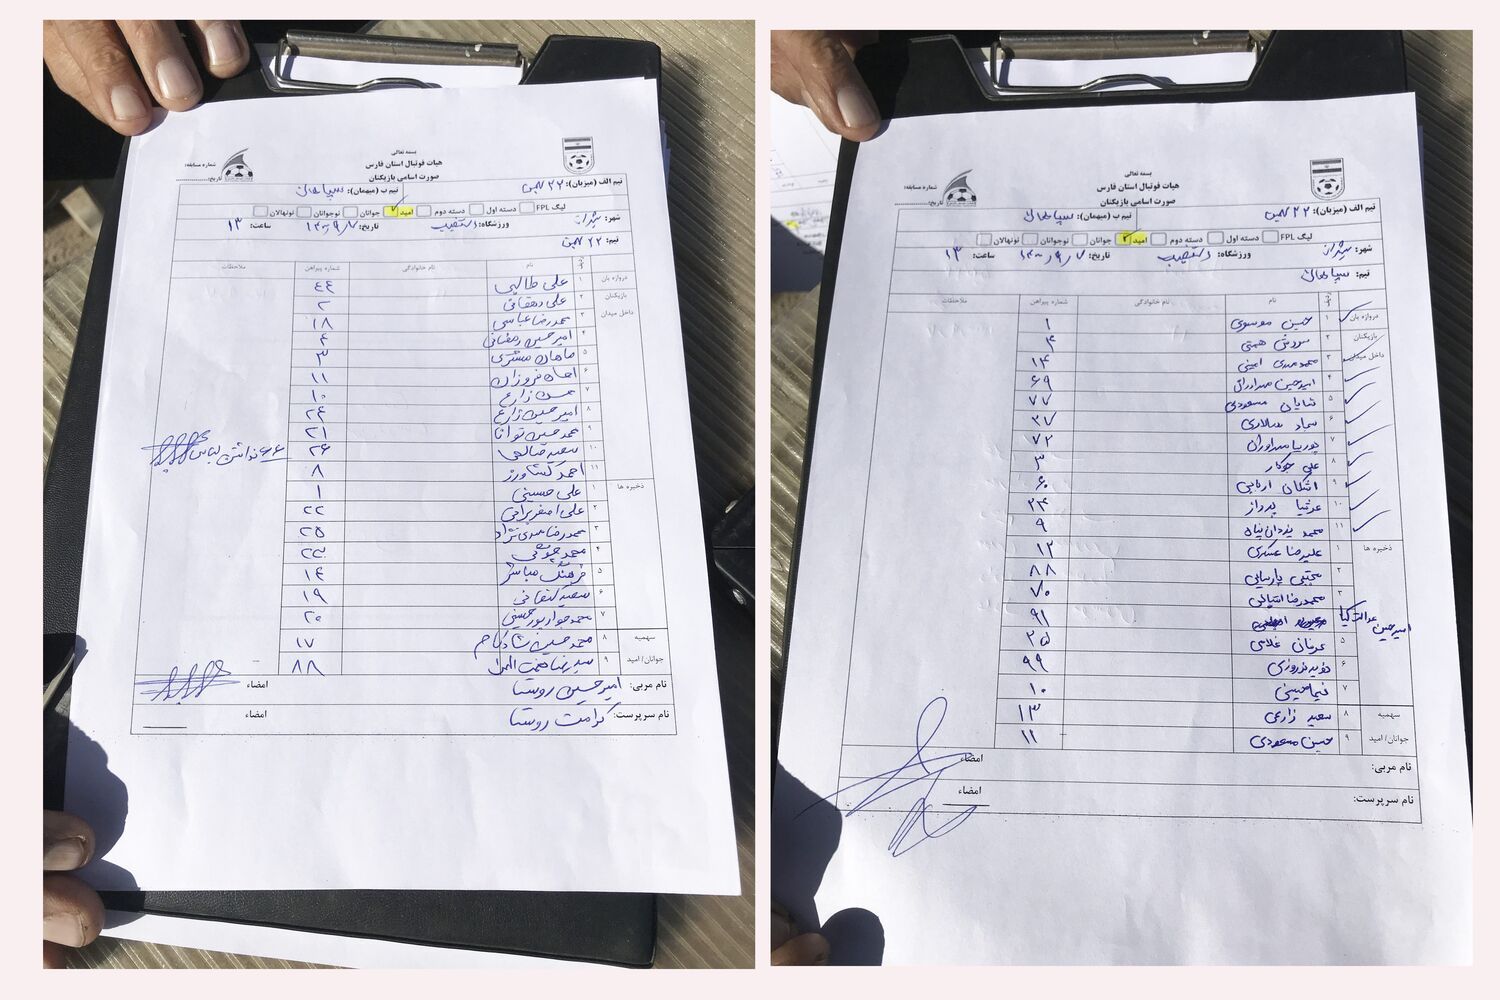 بسمه تعالی
هیات فوتبال استان فارس
صورت اسامی بازیکنان
شماره مسابقه:
تاریخ:
تیم الف (میزبان): ۲۲ بهمن تیم ب (میهمان):
لیگ FPL دسته اول دسته دوم امید جوانان نوجوانان نونهالان
شهر: شیراز ورزشگاه: دستغیب تاریخ: ساعت: ۱۳
تیم: ۲۲ بهمن
ردیف نام نام خانوادگی شماره پیراهن ملاحظات
دروازه بان ۱ علی طالبی ۴۴
بازیکنان ۲ علی دهقانی ۲
داخل میدان ۳ محمدرضا عباسی ۱۸
۴ امیرحسین رمضانی ۴
۵ ماهان مشتری ۳
۶ فروزان ۱۱
۷ زارع ۱۰
۸ امیرحسین زارع ۲۴
۹ محمدحسین توانا ۲۱
۱۰ سعید صالحی ۲۶
۱۱ احمد کشاورز ۸
ذخیره ها ۱ علی حسینی ۱
۲ علی ۲۲
۳ محمدرضا مهدی نژاد ۲۵
۴ محمد ۲۳
۵ فرهنگ مباشر ۱۴
۶ سعید کنعانی ۱۹
۷ محمدجواد پورحسینی ۲۰
سهمیه ۸ محمدحسین شادکام ۱۷
جوانان/ امید ۹ سیدرضا ۸۸
نداشتن لباس
نام مربی: امیرحسین روستا امضاء
نام سرپرست: کرامت روستا امضاء
بسمه تعالی
هیات فوتبال استان فارس
صورت اسامی بازیکنان
شماره مسابقه:
تاریخ:
تیم الف (میزبان): ۲۲ بهمن تیم ب (میهمان):
لیگ FPL دسته اول دسته دوم امید جوانان نوجوانان نونهالان
شهر: شیراز ورزشگاه: دستغیب تاریخ: ساعت: ۱۳
تیم:
ردیف نام نام خانوادگی شماره پیراهن ملاحظات
دروازه بان ۱ حسین موسوی ۱
بازیکنان ۲ سروش همتی ۴
داخل میدان ۳ محمدمهدی امینی ۱۴
۴ امیرحسین مهرآوران ۶۹
۵ شایان مسعودی ۷۷
۶ سالاری ۳۷
۷ پوریا مهرآوران ۷۲
۸ علی جوکار ۳
۹ اشکان ارکایی ۶۰
۱۰ عرشیا پرداز ۳۴
۱۱ محمد یزدان پناه ۹
ذخیره ها ۱ علیرضا عسکری ۱۲
۲ مجتبی پارسایی ۸۸
۳ محمدرضا ۷۰
امیرحسین عدالت کیا ۹۱
۵ عرفان غلامی ۲۵
۶ نوروزی ۹۹
۷ نیما حسینی ۱۰
سهمیه ۸ سعید زارعی ۱۳
جوانان/ امید ۹ حسین مسعودی ۱۱
نام مربی: امضاء
نام سرپرست: امضاء